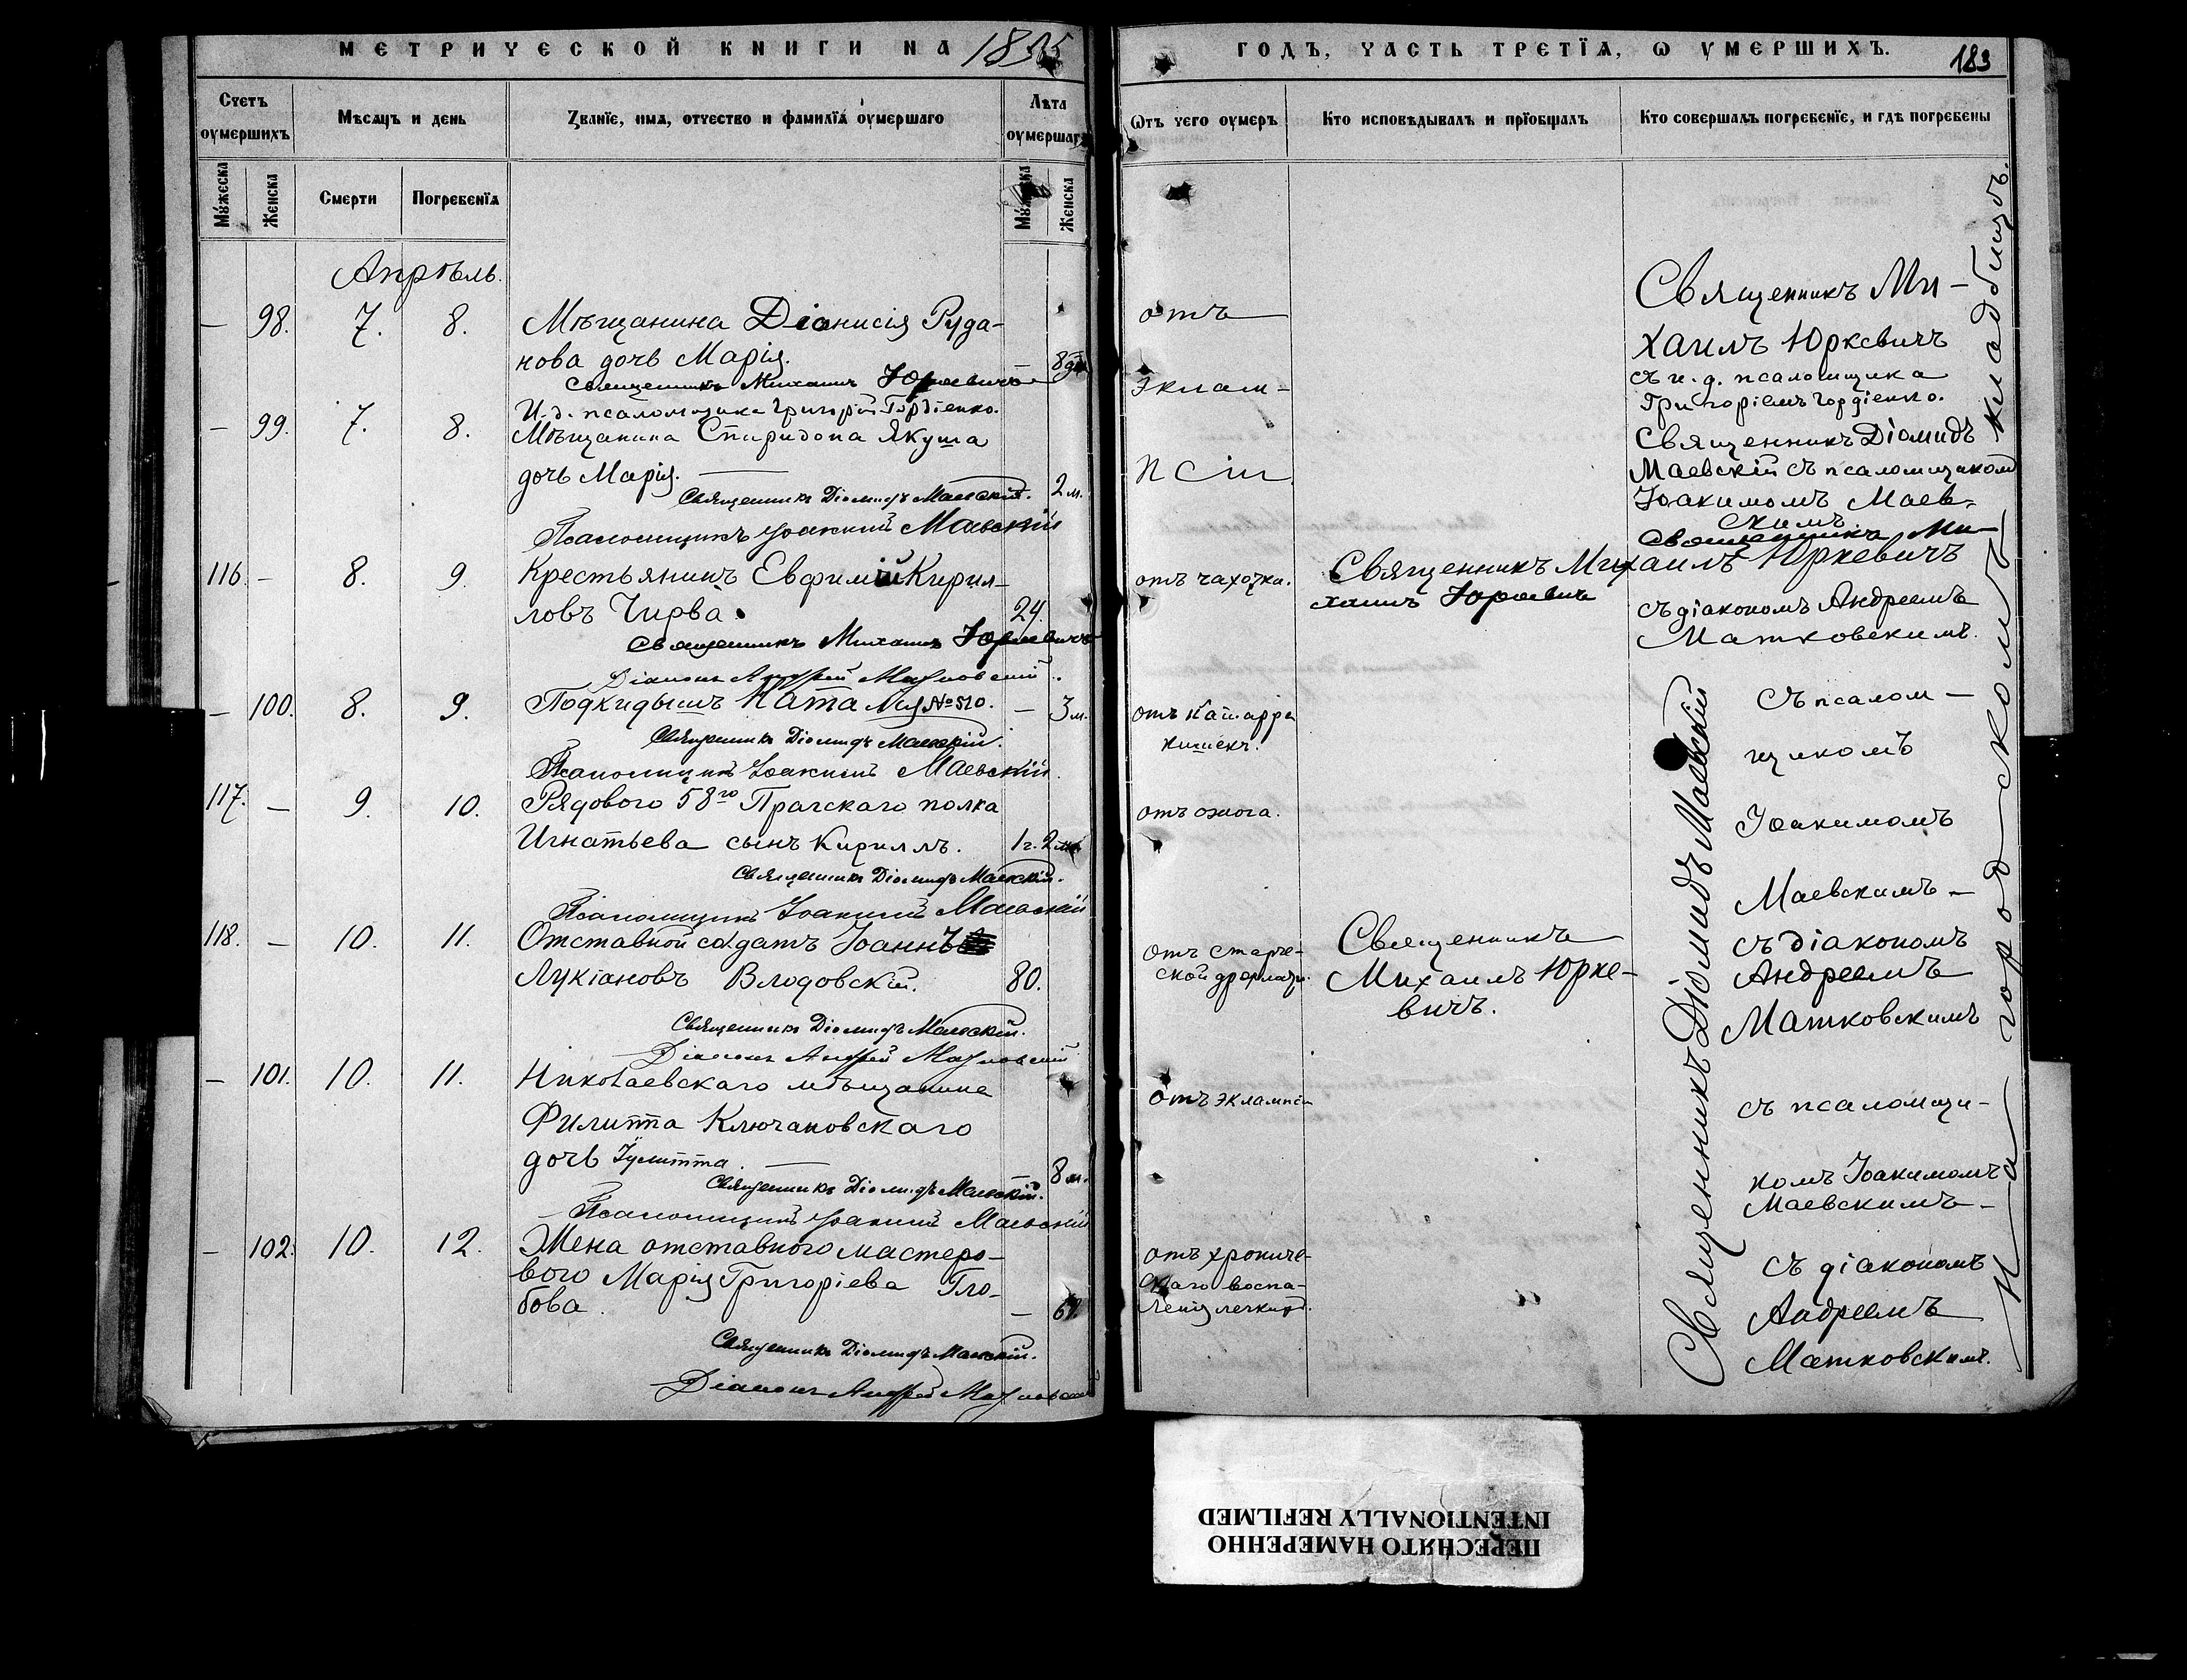 МЕТРИЧЕСКОЙ КНИГИ НА 1895
Счетъ оумершихъ
Мѣсяцъ и день
Званїе, имя, отчество и фамилїя оумершаго
Лѣта оумершаго
Мужеска
Женска
Смерти
Погребенїя
Мужеска
Женска
Апрѣль.
— 98. 7. 8. Мѣщанина Діонисія Руда-
нова дочь Марія. — 8 дн.
Священникъ Михаилъ Юркевичъ
И. д. псаломщика Григорій Гордіенко.
— 99. 7. 8. Мѣщанина Спиридона Якуша
дочь Марія. — 2 м.
Священникъ Діомидъ Маевскій.
Псаломщикъ Іоакимъ Маевскій
116. — 8. 9. Крестьянинъ Евфимій Кирил-
ловъ Чирва. 24.
Священникъ Михаилъ Юркевичъ
Діаконъ Андрей Матковскій.
— 100. 8. 9. Подкидышъ Наталія № 510. — 3 м.
Священникъ Діомидъ Маевскій.
Псаломщикъ Іоакимъ Маевскій.
117. — 9. 10. Рядового 58го Прагскаго полка
Игнатьева сынъ Кириллъ. 1 г. 2 м.
Священникъ Діомидъ Маевскій.
Псаломщикъ Іоакимъ Маевскій
118. — 10. 11. Отставной солдатъ Іоаннъ
Лукіановъ Влодовскій. 80.
Священникъ Діомидъ Маевскій.
Діаконъ Андрей Матковскій
— 101. 10. 11. Николаевскаго мѣщанина
Филиппа Ключановскаго
дочь Іулитта. — 8 м.
Священникъ Діомидъ Маевскій.
Псаломщикъ Іоакимъ Маевскій
— 102. 10. 12. Жена отставного мастеро-
вого Марія Григоріева Гло-
бова. —
Священникъ Діомидъ Маевскій.
Діаконъ Андрей Матковскій
ГОДЪ, ЧАСТЬ ТРЕТЇЯ, Ѡ УМЕРШИХЪ.
183
Ѿтъ чего оумеръ
Кто исповѣдывалъ и прїобщалъ
Кто совершалъ погребенїе, и гдѣ погребены
отъ
эклам-
псіи
отъ чахотки.
отъ катарра
кишекъ.
отъ ожога.
отъ старче-
ской дряхлости.
отъ эклампсіи
отъ хрониче-
скаго воспа-
ленія легкихъ.
Священникъ Ми-
хаилъ Юркевичъ
Священникъ
Михаилъ Юрке-
вичъ.
Священникъ Ми-
хаилъ Юркевичъ
съ и. д. псаломщика
Григоріемъ Гордіенко.
Священникъ Діомидъ
Маевскій съ псаломщикомъ
Іоакимомъ Маев-
скимъ
Священникъ Ми-
хаилъ Юркевичъ
съ діакономъ Андреемъ
Матковскимъ.
Священникъ Діомидъ Маевскій
съ псалом-
щикомъ
Іоакимомъ
Маевскимъ —
съ діакономъ
Андреемъ
Матковскимъ
съ псаломщи-
комъ Іоакимомъ
Маевскимъ —
съ діакономъ
Андреемъ
Матковскимъ.
На городскомъ кладбищѣ.
ПЕРЕСНЯТО НАМЕРЕННО
INTENTIONALLY REFILMED